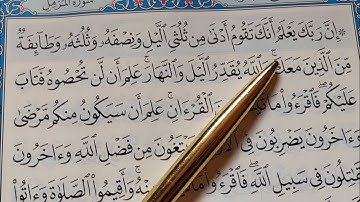 سورة المزمل
إِنَّ رَبَّكَ يَعْلَمُ أَنَّكَ تَقُومُ أَدْنَىٰ مِن ثُلُثَىِ ٱلَّيْلِ وَنِصْفَهُۥ وَثُلُثَهُۥ وَطَآئِفَةٌ
مِّنَ ٱلَّذِينَ مَعَكَ ۚ وَٱللَّهُ يُقَدِّرُ ٱلَّيْلَ وَٱلنَّهَارَ ۚ عَلِمَ أَن لَّن تُحْصُوهُ فَتَابَ
عَلَيْكُمْ ۖ فَٱقْرَءُوا۟ مَا تَيَسَّرَ ٱلْقُرْءَانِ ۚ عَلِمَ أَن سَيَكُونُ مِنكُم مَّرْضَىٰ
وَءَاخَرُونَ يَضْرِبُونَ فِى ٱلْأَ يَبْتَغُونَ مِن فَضْلِ ٱللَّهِ ۙ وَءَاخَرُونَ
يُقَٰتِلُونَ فِى سَبِيلِ ٱللَّهِ ۖ فَٱقْرَءُوا۟ مَا مِنْهُ ۚ وَأَقِيمُوا۟ ٱلصَّلَوٰةَ وَءَاتُوا۟